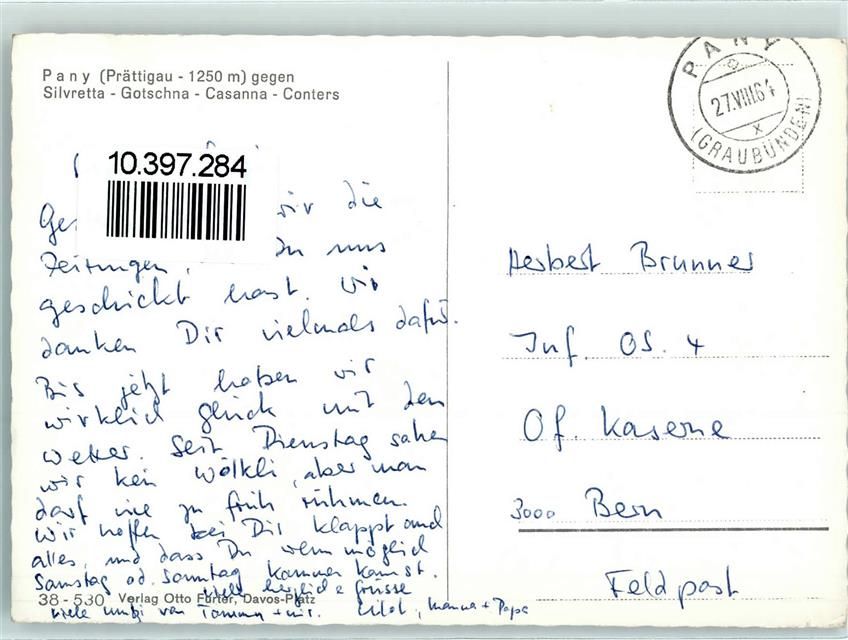 Pany (Prättigau - 1250 m) gegen
Silvretta - Gotschna - Casanna - Conters
10.397.284
wir die
Zeitungen, Du uns
geschickt hast. Wir
danken Dir vielmals dafür.
Bis jetzt haben wir
wirklich glück mit dem
wetter. Seit Dienstag sahen
wir kein wölkli, aber man
darf nie zu früh rühmen.
Wir hoffen bei Dir klappt auch
alles, und dass Du wenn möglich
Samstag od. Sonntag kommen kannst.
viele herzliche Grüsse
38-530 Verlag Otto Furter, Davos-Platz
viele von Mamma + Papa
PANY
27.VIII.64
x
(GRAUBÜNDEN)
Herbert Brunner
Inf. OS. 4
Of. Kaserne
3000 Bern
Feldpost